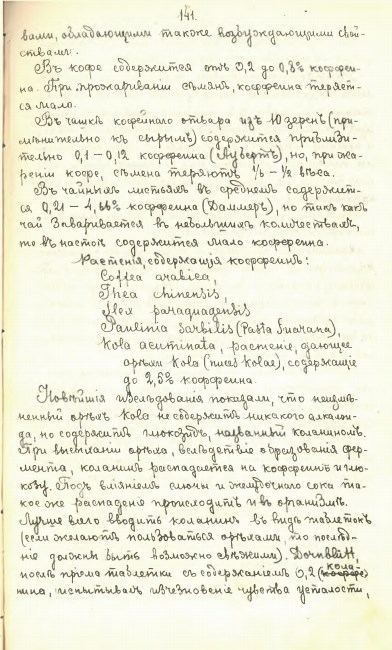 141.
вами, обладающими также возбуждающими свой-
ствамъ.
Въ кофе содержится отъ 0,2 до 0,8% коффеи-
на. При прожариваніи сѣмянъ, коффеина теряет-
ся мало.
Въ чашкѣ кофейнаго отвара изъ 10 зеренъ (при-
мѣнительно къ сырымъ) содержится приблизи-
тельно 0,1 – 0,12 коффеина (Аубертъ), но, при жа-
реніи кофе, сѣмена теряютъ 1/5 – 1/2 вѣса.
Въ чайныхъ листьяхъ въ среднемъ содержит-
ся 0,21 – 4,66% коффеина (Даммеръ), но такъ какъ
чай заваривается въ небольшихъ количествахъ,
то въ настоѣ содержится мало коффеина.
Растенія, содержащія коффеинъ:
Coffea arabica,
Thea chinensis,
Ilex paraguadensis
Paulinia sorbilis (Pasta Guarana),
Kola acuminata, растеніе, дающее
орѣхи Kola (nuces Kolae), содержащіе
до 2,5% коффеина.
Новѣйшія изслѣдованія показали, что неизмѣ-
ненный орѣхъ Kola не содержитъ никакого алкалои-
да, но содержитъ глюкозидъ, названный коланиномъ.
При высыханіи орѣха, вслѣдствіе образованія фер-
мента, коланинъ распадается на коффеинъ и глю-
козу. Подъ вліяніемъ слюны и желудочнаго сока та-
кое же распаденіе происходитъ и въ организмѣ.
Лучше всего вводить коланинъ въ видѣ таблетокъ
(если желаютъ пользоваться орѣхами, то послѣд-
ніе должны быть возможно свѣжими). Dornblüth,
послѣ пріема таблетки съ содержаніемъ 0,2 кола-
нина, испытывалъ изчезновеніе чувства усталости,